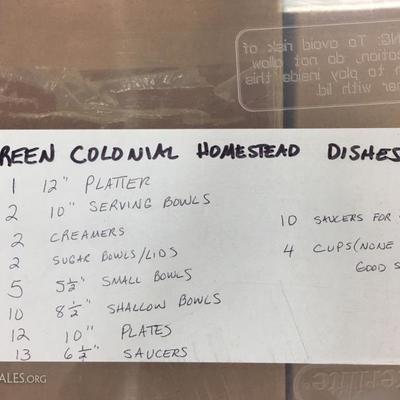 NG: To avoid risk of
cation, do not allow
n to play inside this
ner with lid.
REEN COLONIAL HOMESTEAD DISHES
1 12" PLATTER
2 10" SERVING BOWLS
2 CREAMERS
2 SUGAR BOWLS/LIDS
5 5½" SMALL BOWLS
10 8½" SHALLOW BOWLS
12 10" PLATES
13 6½" SAUCERS
10 SAUCERS FOR
4 CUPS (NONE
GOOD S
ALES.ORG
erilite